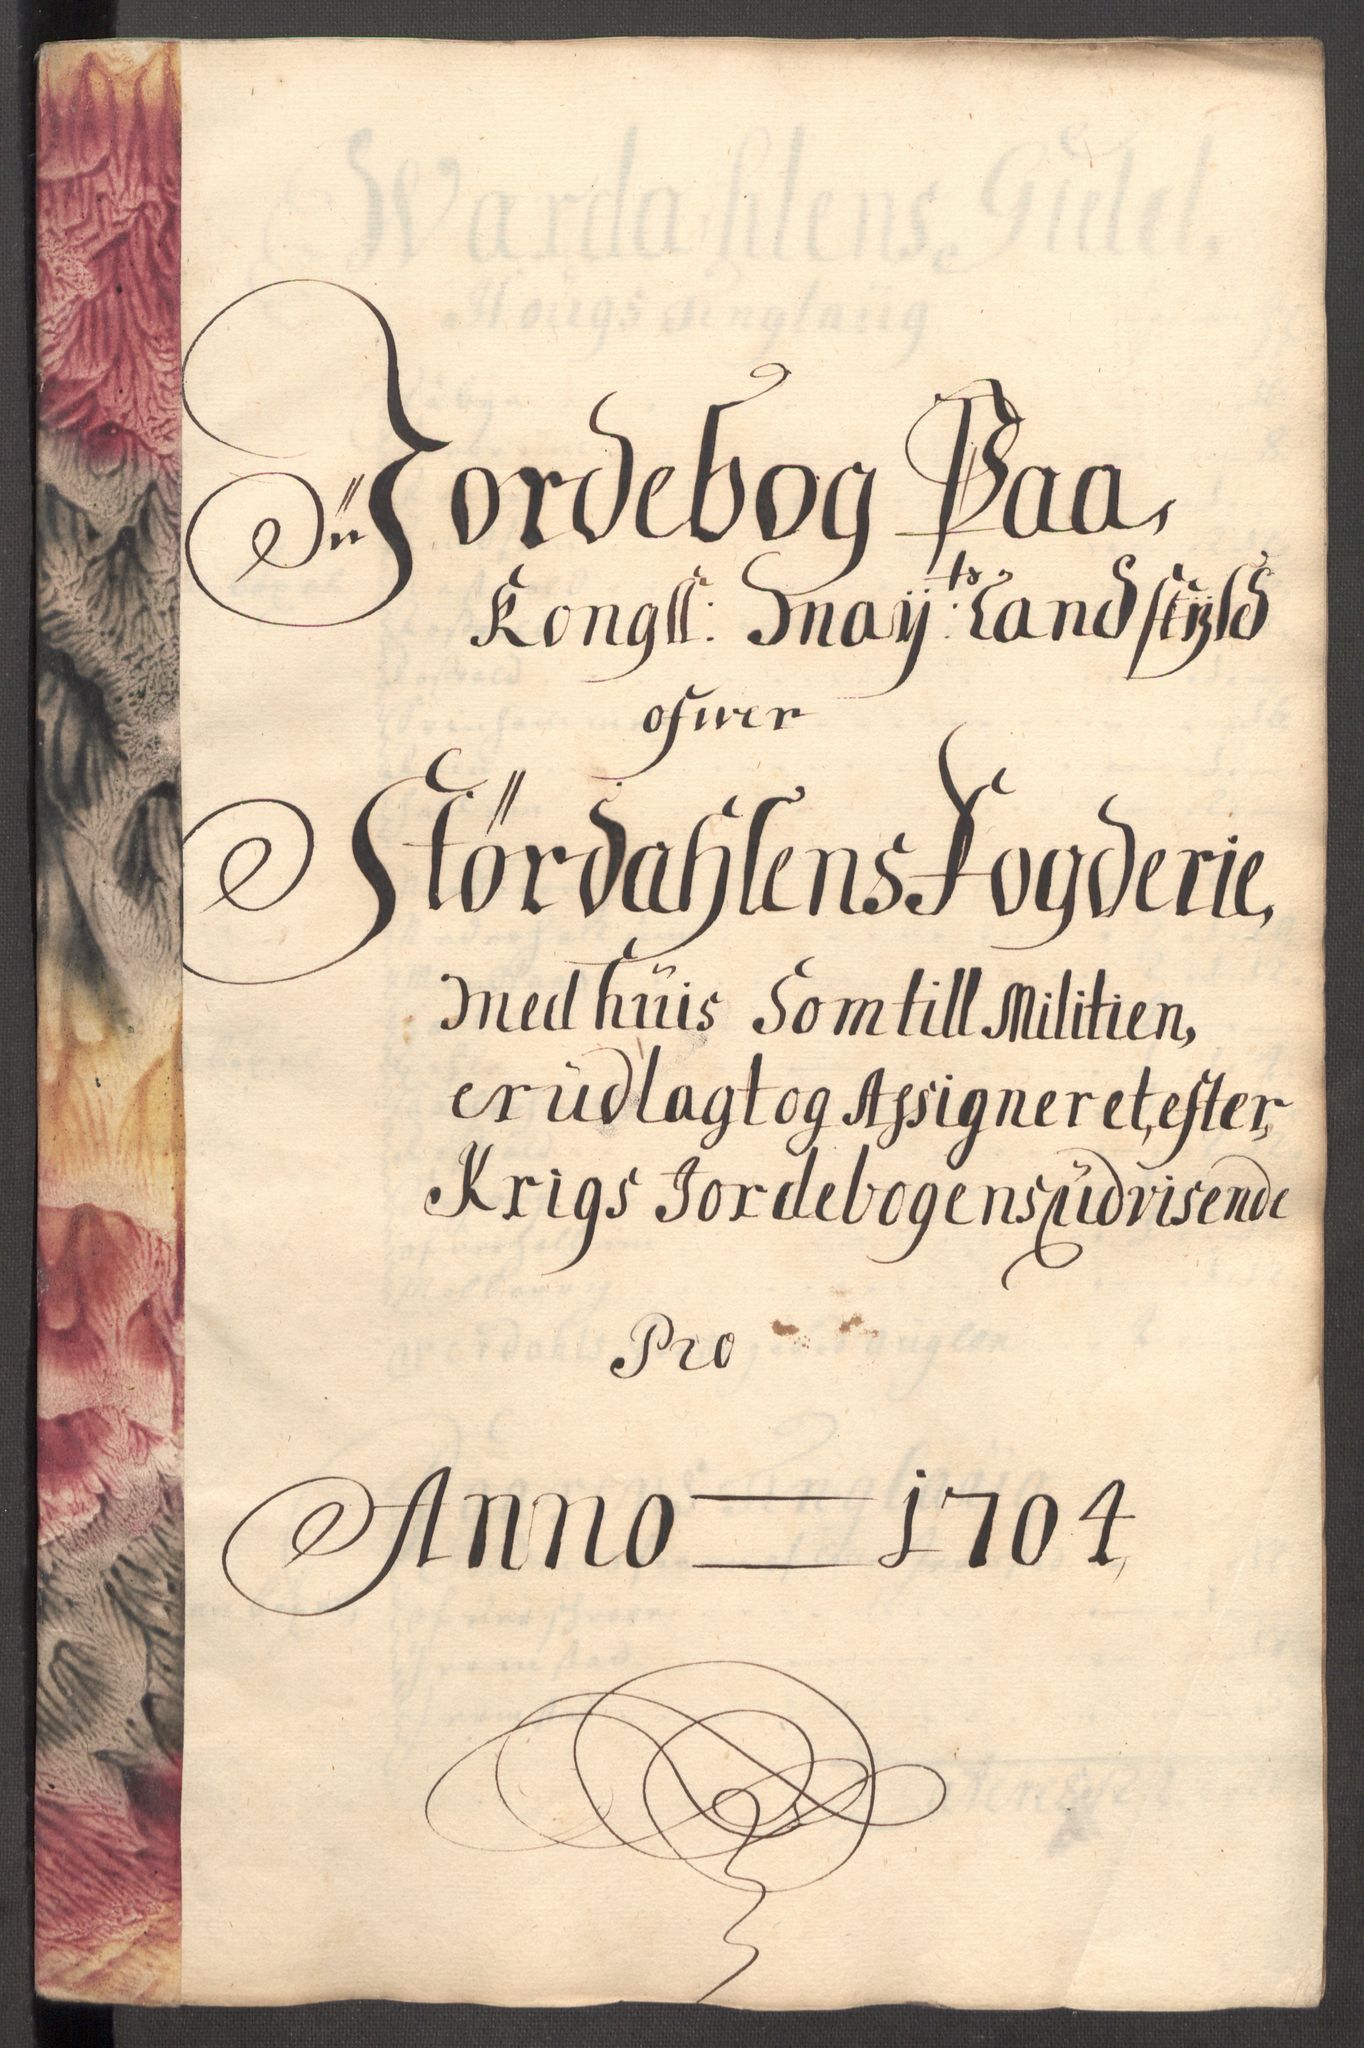 En Jordebog Paa,
Kongll: May:ts Landskyld
ofwer
Størdahlens Fogderie,
Med huis Som till Militien,
er udlagt og Assigneret, efter,
Krigs Jordebogens udvisende
Pro
Anno 1704